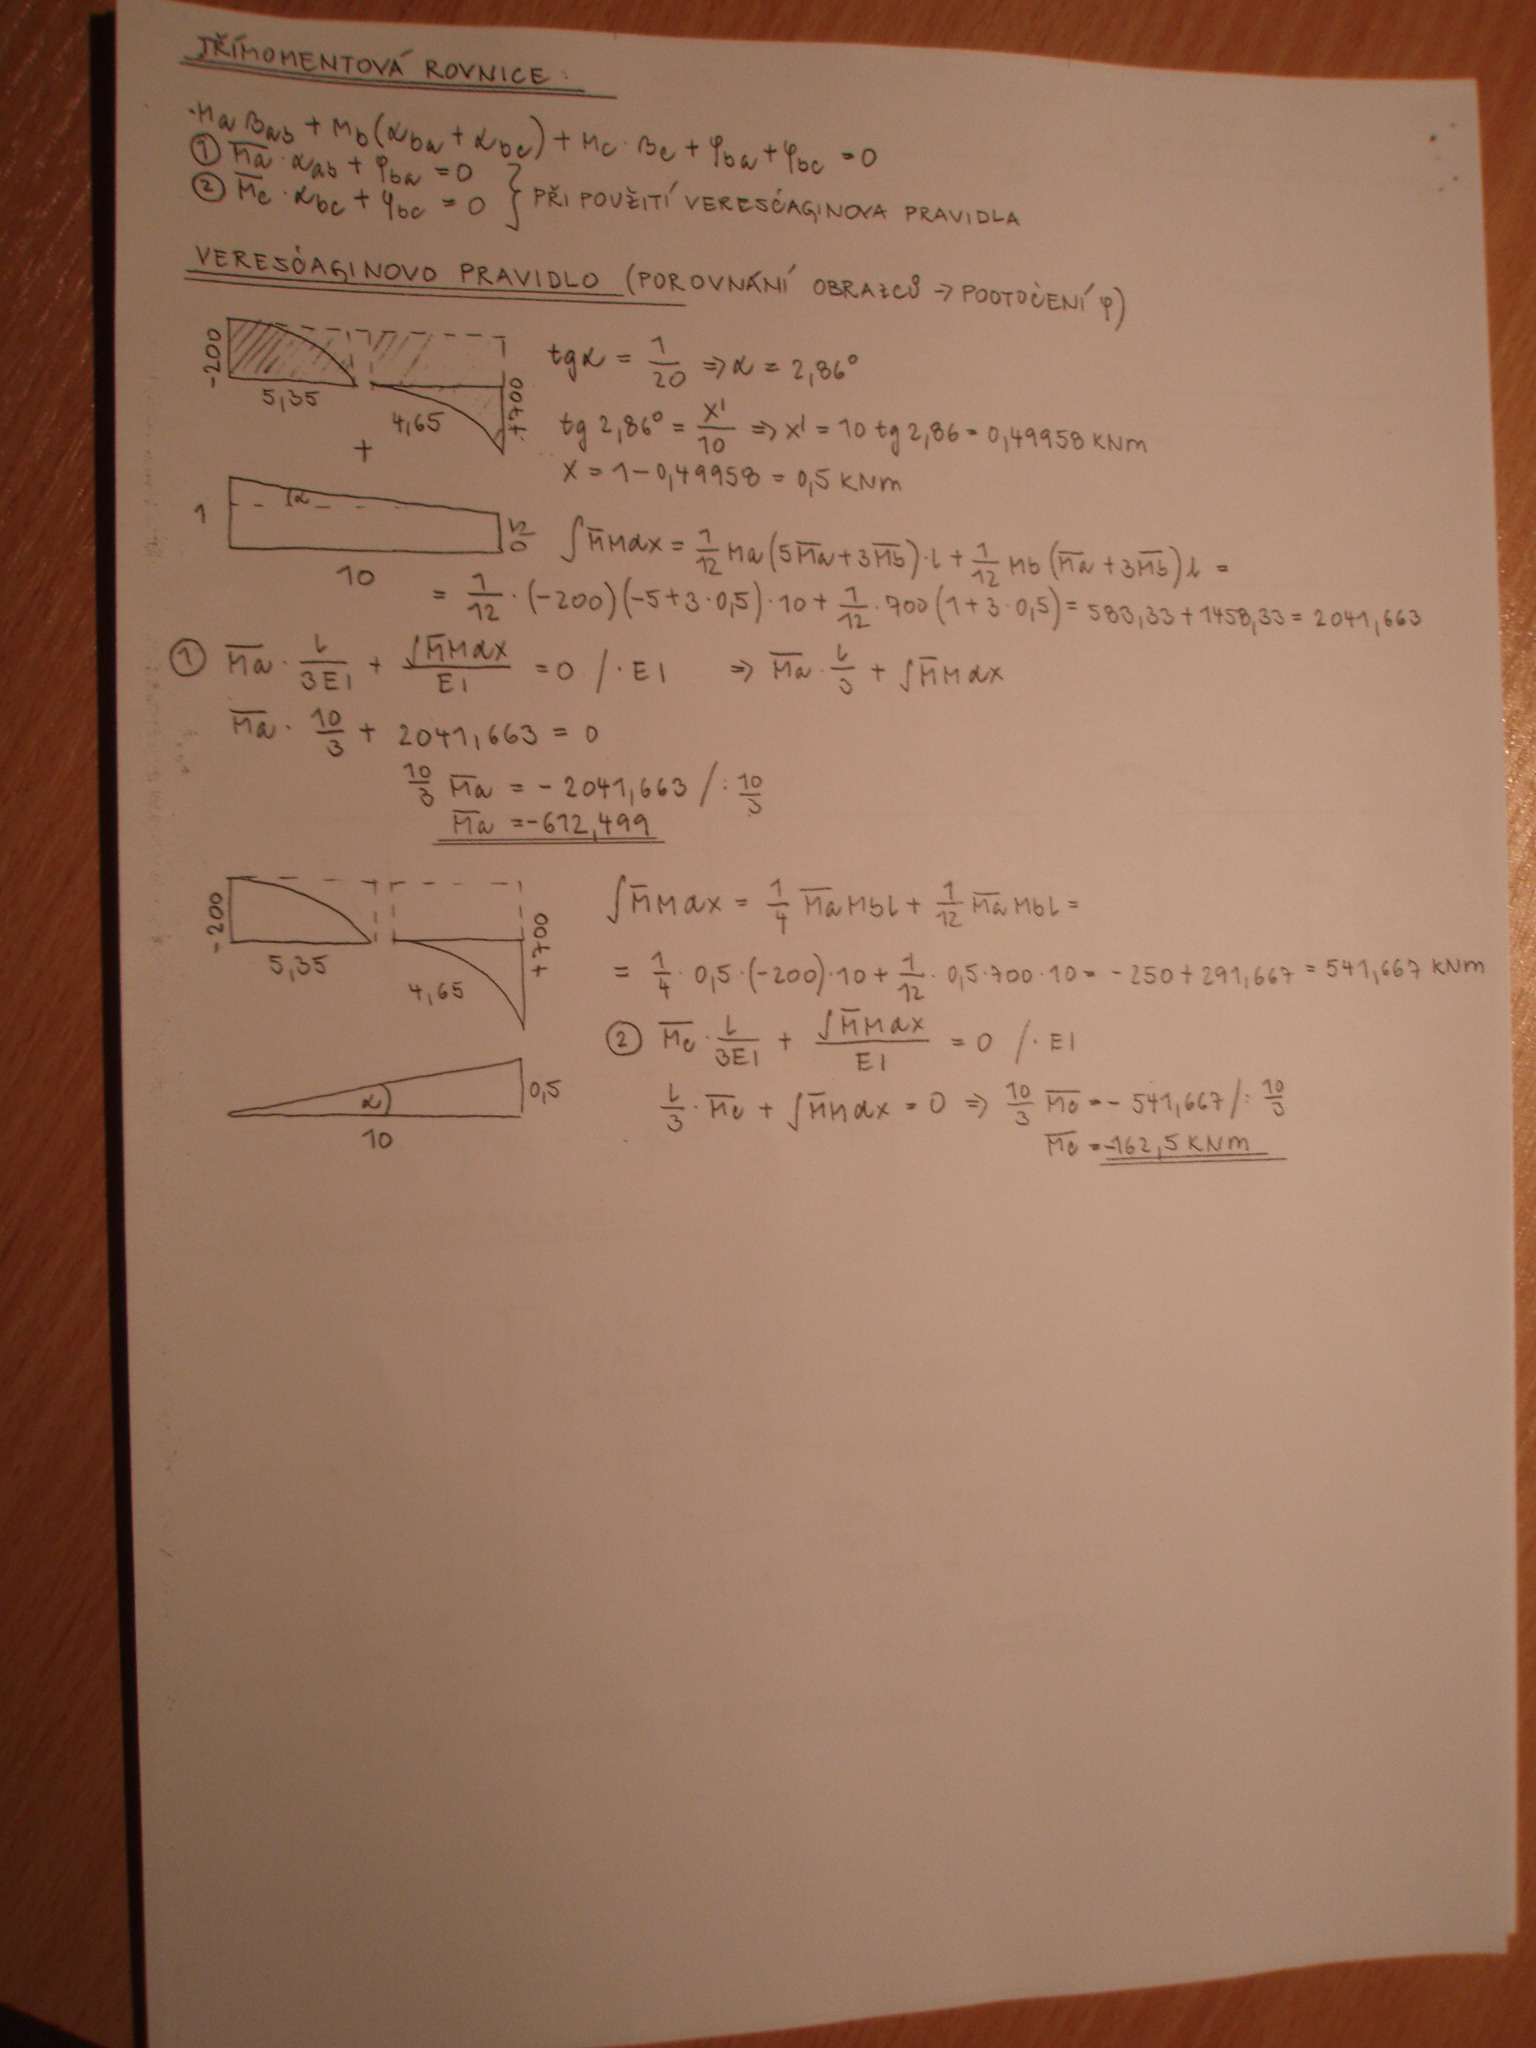 TŘÍMOMENTOVÁ ROVNICE:
Ma βab + Mb(αba + αbc) + Mc · βc + φba + φbc = 0
① M̅a · αab + φba = 0
② M̅c · αbc + φbc = 0 } PŘI POUŽITÍ VERESČAGINOVA PRAVIDLA
VERESČAGINOVO PRAVIDLO (POROVNÁNÍ OBRAZCŮ → POOTOČENÍ φ)
-200
5,35
4,65
+700
tgα = 1/20 ⇒ α = 2,86°
tg 2,86° = x'/10 ⇒ x' = 10 tg 2,86 = 0,49958 KNm
+
x = 1 - 0,49958 = 0,5 KNm
1
α
10
∫M̅Mdx = 1/12 Ma (5M̅a + 3M̅b) · l + 1/12 Mb (M̅a + 3M̅b) l =
= 1/12 · (-200)(-5 + 3 · 0,5) · 10 + 1/12 · 700 (1 + 3 · 0,5) = 583,33 + 1458,33 = 2041,663
① M̅a · l/3EI + ∫M̅Mdx/EI = 0 / · EI ⇒ M̅a · l/3 + ∫M̅Mdx
M̅a · 10/3 + 2041,663 = 0
10/3 M̅a = - 2041,663 / : 10/3
M̅a = -612,499
-200
5,35
4,65
+700
∫M̅Mdx = 1/4 M̅a Mb l + 1/12 M̅a Mb l =
= 1/4 · 0,5 · (-200) · 10 + 1/12 · 0,5 · 700 · 10 = -250 + 291,667 = 541,667 KNm
② M̅c · l/3EI + ∫M̅Mdx/EI = 0 / · EI
α
0,5
10
l/3 · M̅c + ∫M̅Mdx = 0 ⇒ 10/3 M̅c = - 541,667 / : 10/3
M̅c = -162,5 KNm